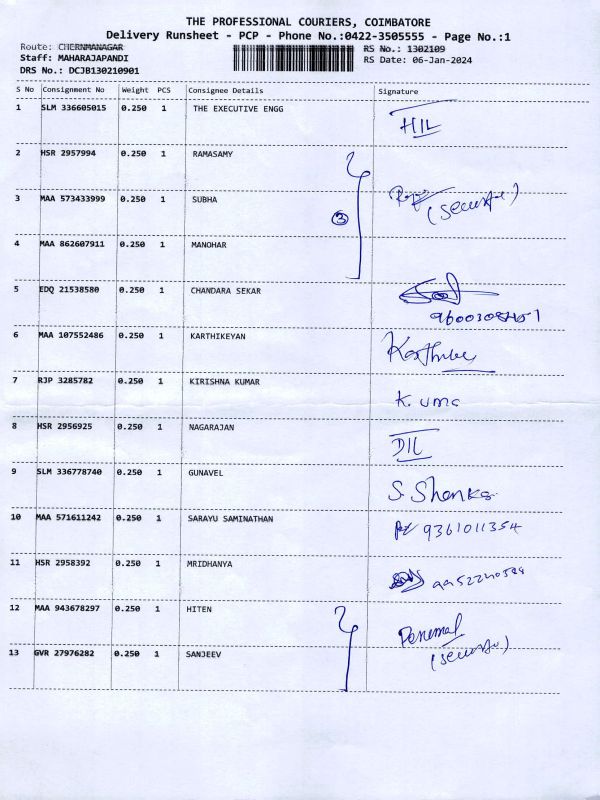 THE PROFESSIONAL COURIERS, COIMBATORE
Delivery Runsheet - PCP - Phone No.:0422-3505555 - Page No.:1
Route: CHERNMANAGAR
RS No.: 1302109
Staff: MAHARAJAPANDI
RS Date: 06-Jan-2024
DRS No.: DCJB130210901
S No Consignment No Weight PCS Consignee Details Signature
1 SLM 336605015 0.250 1 THE EXECUTIVE ENGG HIL
2 HSR 2957994 0.250 1 RAMASAMY
3 MAA 573433999 0.250 1 SUBHA
3
4 MAA 862607911 0.250 1 MANOHAR
5 EDQ 21538580 0.250 1 CHANDARA SEKAR
6 MAA 107552486 0.250 1 KARTHIKEYAN
7 RJP 3285782 0.250 1 KIRISHNA KUMAR K. uma
8 HSR 2956925 0.250 1 NAGARAJAN DIL
9 SLM 336778740 0.250 1 GUNAVEL S. Shenka
10 MAA 571611242 0.250 1 SARAYU SAMINATHAN 9361011354
11 HSR 2958392 0.250 1 MRIDHANYA
12 MAA 943678297 0.250 1 HITEN
13 GVR 27976282 0.250 1 SANJEEV